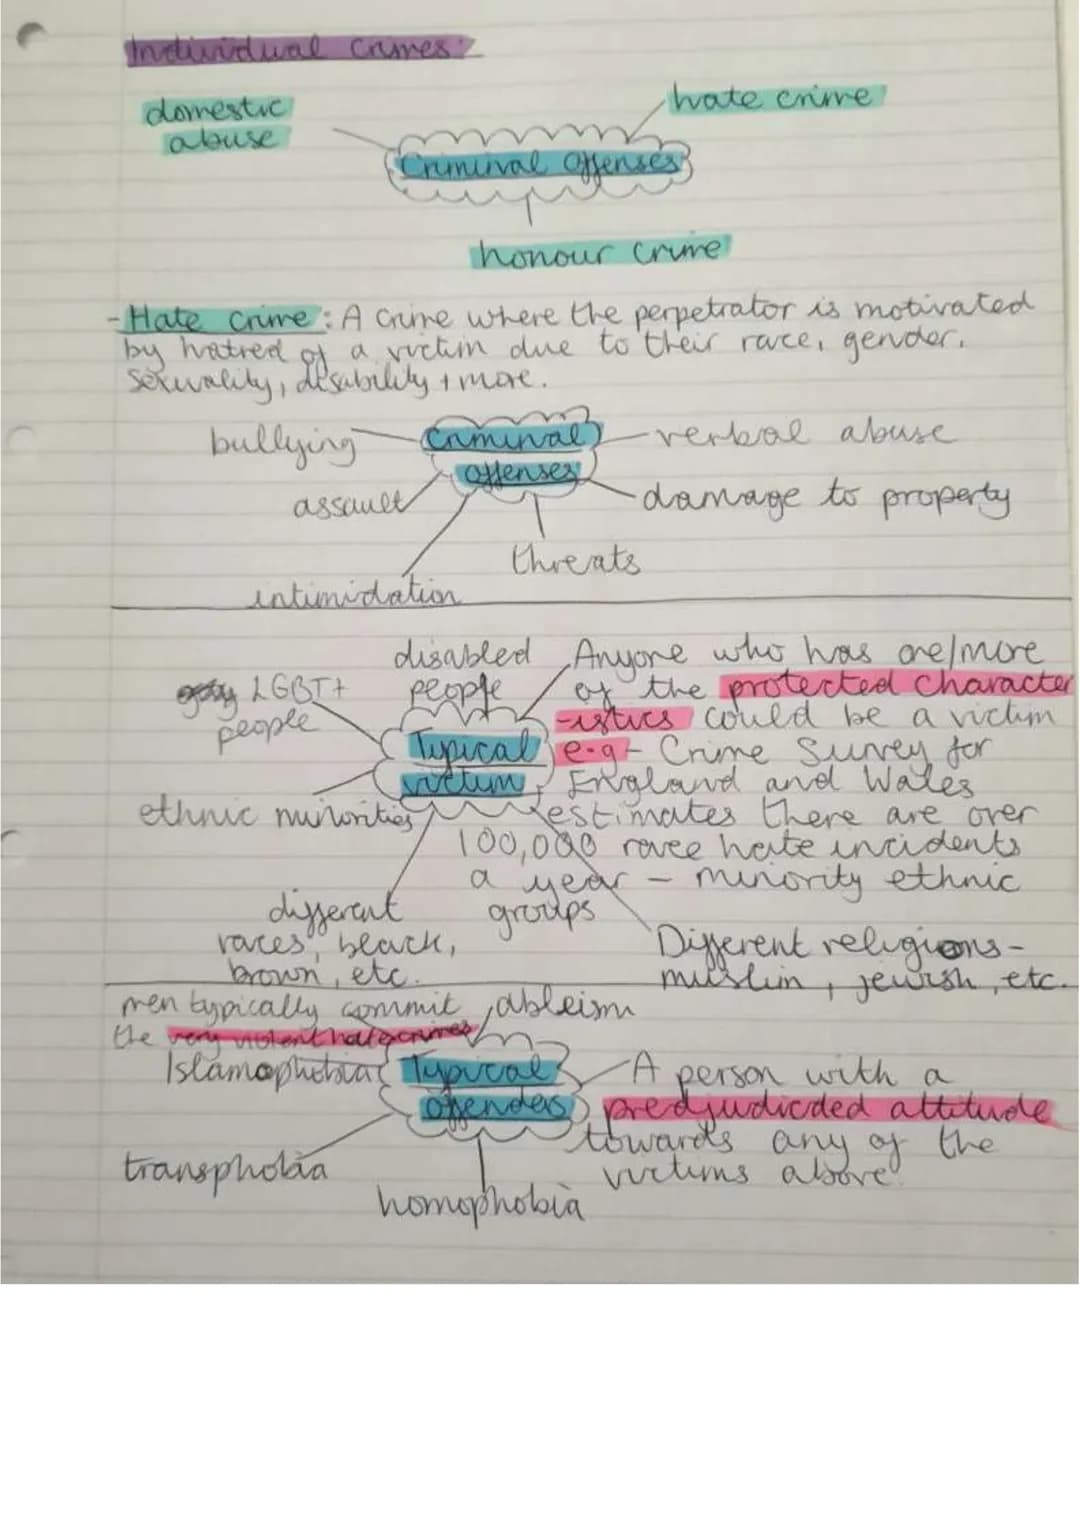 Individual crimes:
domestic
abuse
hate crime
Criminal offenses
honour crime
- Hate crime : A crime where the perpetrator is motivated
by hatred of a victim due to their race, gender,
sexuality, disability + more.
bullying
Criminal
offenses
verbal abuse
assault
damage to property
threats
intimidation
disabled
people
LGBT+
people
Typical
victim
Anyone who has one/more
of the protected character
-istics could be a victim
e.g - Crime Survey for
England and Wales
estimates there are over
100,000 race hate incidents
a year - minority ethnic
groups
ethnic minorities
different
races, black,
brown, etc.
Different religions-
muslim, jewish, etc.
men typically commit
the very violent hate crimes
ableism
Islamophobia
Typical
offenders
A person with a
predjudicded attitude
towards any of the
victims above.
transphobia
homophobia